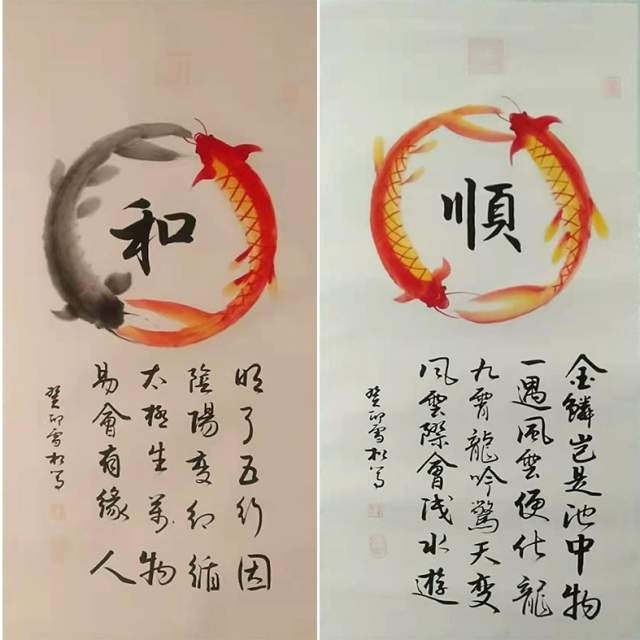 和
明了五行因
陰陽變幻循
太極生萬物
易會有緣人
癸卯雪松寫
順
金鱗岂是池中物
一遇風雲便化龍
九霄龍吟驚天變
风雲際會浅水遊
癸卯雪松寫